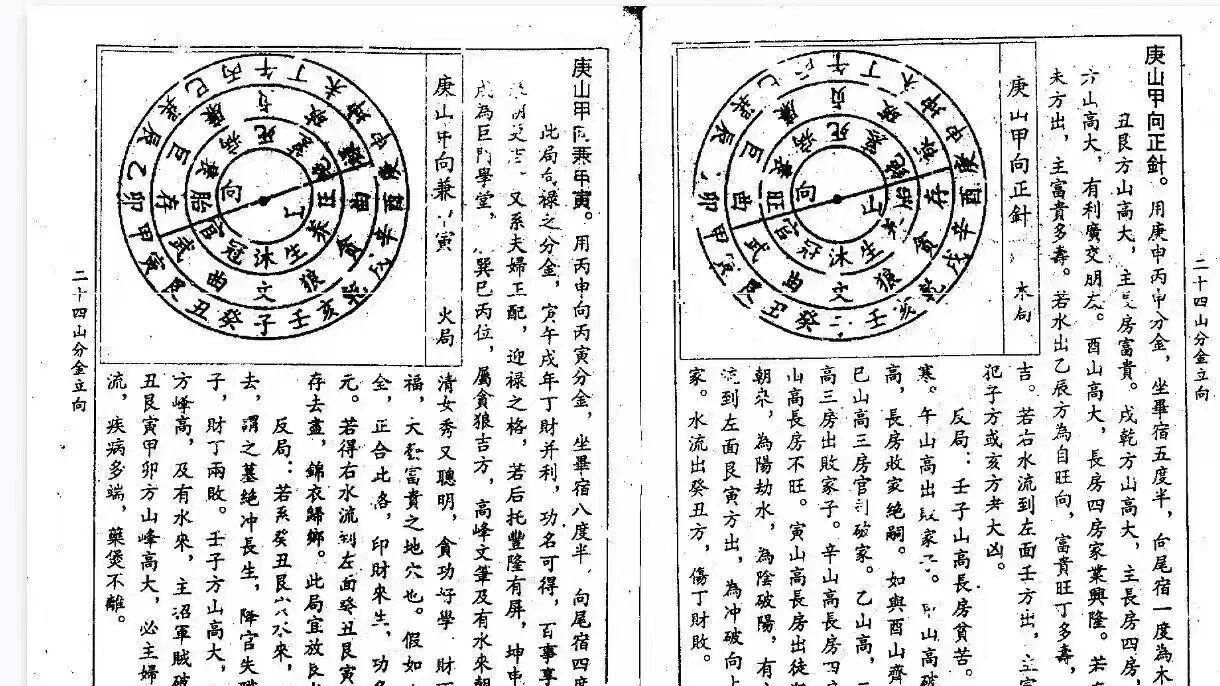 二十四山分金立向
庚山甲向正針。用庚申丙申分金，坐畢宿五度半，向尾宿一度為木
丑艮方山高大，主房富貴。戌乾方山高大，主長房四房，
方山高大，有利廣交朋友。酉山高大，長房四房家業興隆。若
未方出，主富貴多壽。若水出乙辰方為自旺向，富貴旺丁多壽，
庚山甲向正針 木局
吉。若右水流到左面壬方出，立
犯子方或亥方者大凶。
反局：壬子山高長房貧苦。
寒。午山高出敗家。山高破
高，長房收家絶嗣。如與酉山齊
巳山高三房官破家。乙山高，
高三房出敗家子。辛山高長房四
山高長房不旺。寅山高長房出徒
朝來，為陽劫水，為陰破陽，有
流到左面艮寅方出，為冲破向上
家。水流出癸丑方，傷丁財敗。
丁午
卯甲寅艮丑癸壬亥乾戌辛酉庚申坤未
巽辰
廉貞破祿存貪狼文曲武
病死墓絕胎生沐冠官旺
向山
庚山甲向兼申寅。用丙申向丙寅分金，坐畢宿八度半，向尾宿四度
此局為祿之分金，寅午戌年丁財并利，功名可得，百事亨
又系夫婦正配，迎祿之格，若后托豐隆有屏，坤申
成為巨門學堂，巽巳丙位，屬貪狼吉方，高峰文筆及有水來朝
庚山甲向兼寅 火局
清女秀又聰明，貪功好學，財丁
福，大發富貴之地穴也。假如
全，正合此格，印財來生，功名
元。若得右水流到左面癸丑艮寅
存去盡，錦衣歸鄉。此局宜放艮
反局：若系癸丑艮水來，
去，謂之墓絶冲長生，降官失職
子，財丁兩敗。壬子方山高大，
方峰高，及有水來，主沼軍賊破
丑艮寅甲卯方山峰高大，必主婦
流，疾病多端，藥煲不離。
丁午丙巳巽辰乙卯甲寅艮丑癸子壬亥乾戌辛酉庚申坤未
貞廉巨存武曲文狼貪曲祿破
死病衰胎官冠沐生養旺絕墓
向山
二十四山分金立向